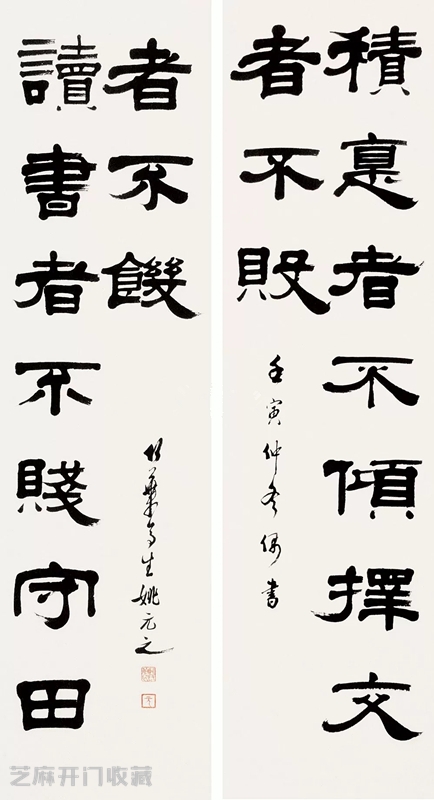 積悳者不傾擇交
者不敗
壬寅仲冬偶書
讀書者不賤守田
者不饑
竹葉亭生姚元之
芝麻开门收藏